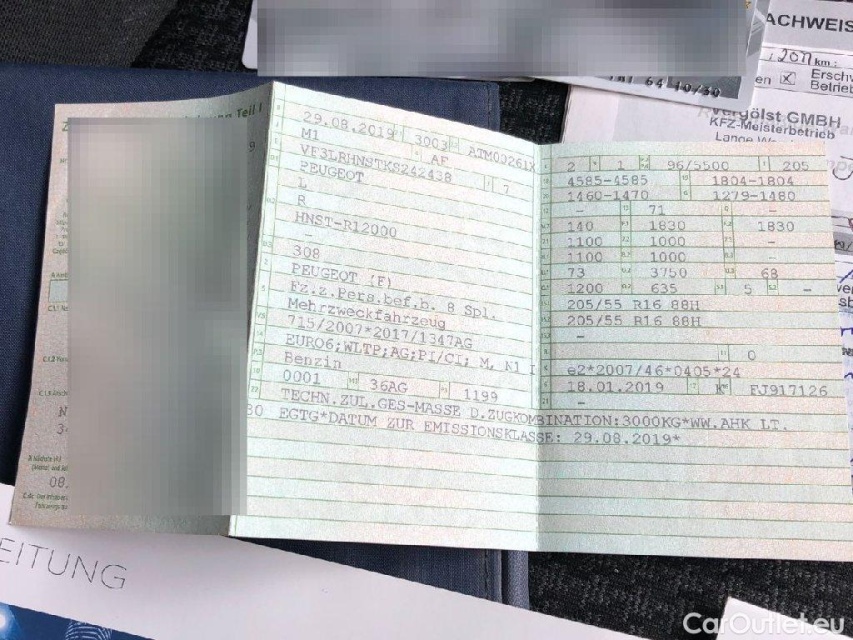 ACHWEIS
2011 km:
en ☒ Erschw
Betrieb
64 10/30
Vergölst GMBH
KFZ-Meisterbetrieb
Lange W
Teil I
29.08.2019 3003 ATM00261X
M1 AF
VF3LRHNSTKS242438 7
PEUGEOT
L
R
HNST-R12000
-
308
PEUGEOT (F)
Fz.z.Pers.bef.b. 8 Spl.
Mehrzweckfahrzeug
715/2007*2017/1347AG
EURO6;WLTP;AG;PI/CI; M, N1 I
Benzin
0001 36AG 1199
2 1 96/5500 205
4585-4585 1804-1804
1460-1470 1279-1480
- 71 -
140 1830 1830
1100 1000 -
1100 1000 -
73 3750 68
1200 635 5 -
205/55 R16 88H
205/55 R16 88H
-
- 0
e2*2007/46*0405*24
18.01.2019 K FJ917126
-
TECHN.ZUL.GES-MASSE D.ZUGKOMBINATION:3000KG*WW.AHK LT.
EGTG*DATUM ZUR EMISSIONSKLASSE: 29.08.2019*
08.
EITUNG
CarOutlet.eu